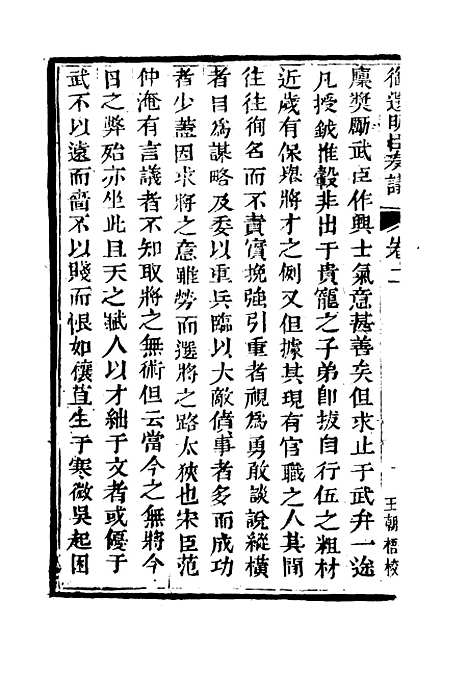 御選明臣奏議 卷二 一 王朝梧校
廩獎勵武臣作興士氣意甚善矣但求止于武弁一途
凡授鉞推轂非出于貴寵之子弟卽拔自行伍之粗材
近歲有保舉將才之例又但據其現有官職之人其間
往往徇名而不責實挽強引重者視爲勇敢談說縱橫
者目爲謀略及委以重兵臨以大敵僨事者多而成功
者少蓋因求將之意雖勞而選將之路太狹也宋臣范
仲淹有言議者不知取將之無術但云當今之無將今
日之弊殆亦坐此且天之賦人以才絀于文者或優于
武不以遠而嗇不以賤而恨如穰苴生于寒微吳起困